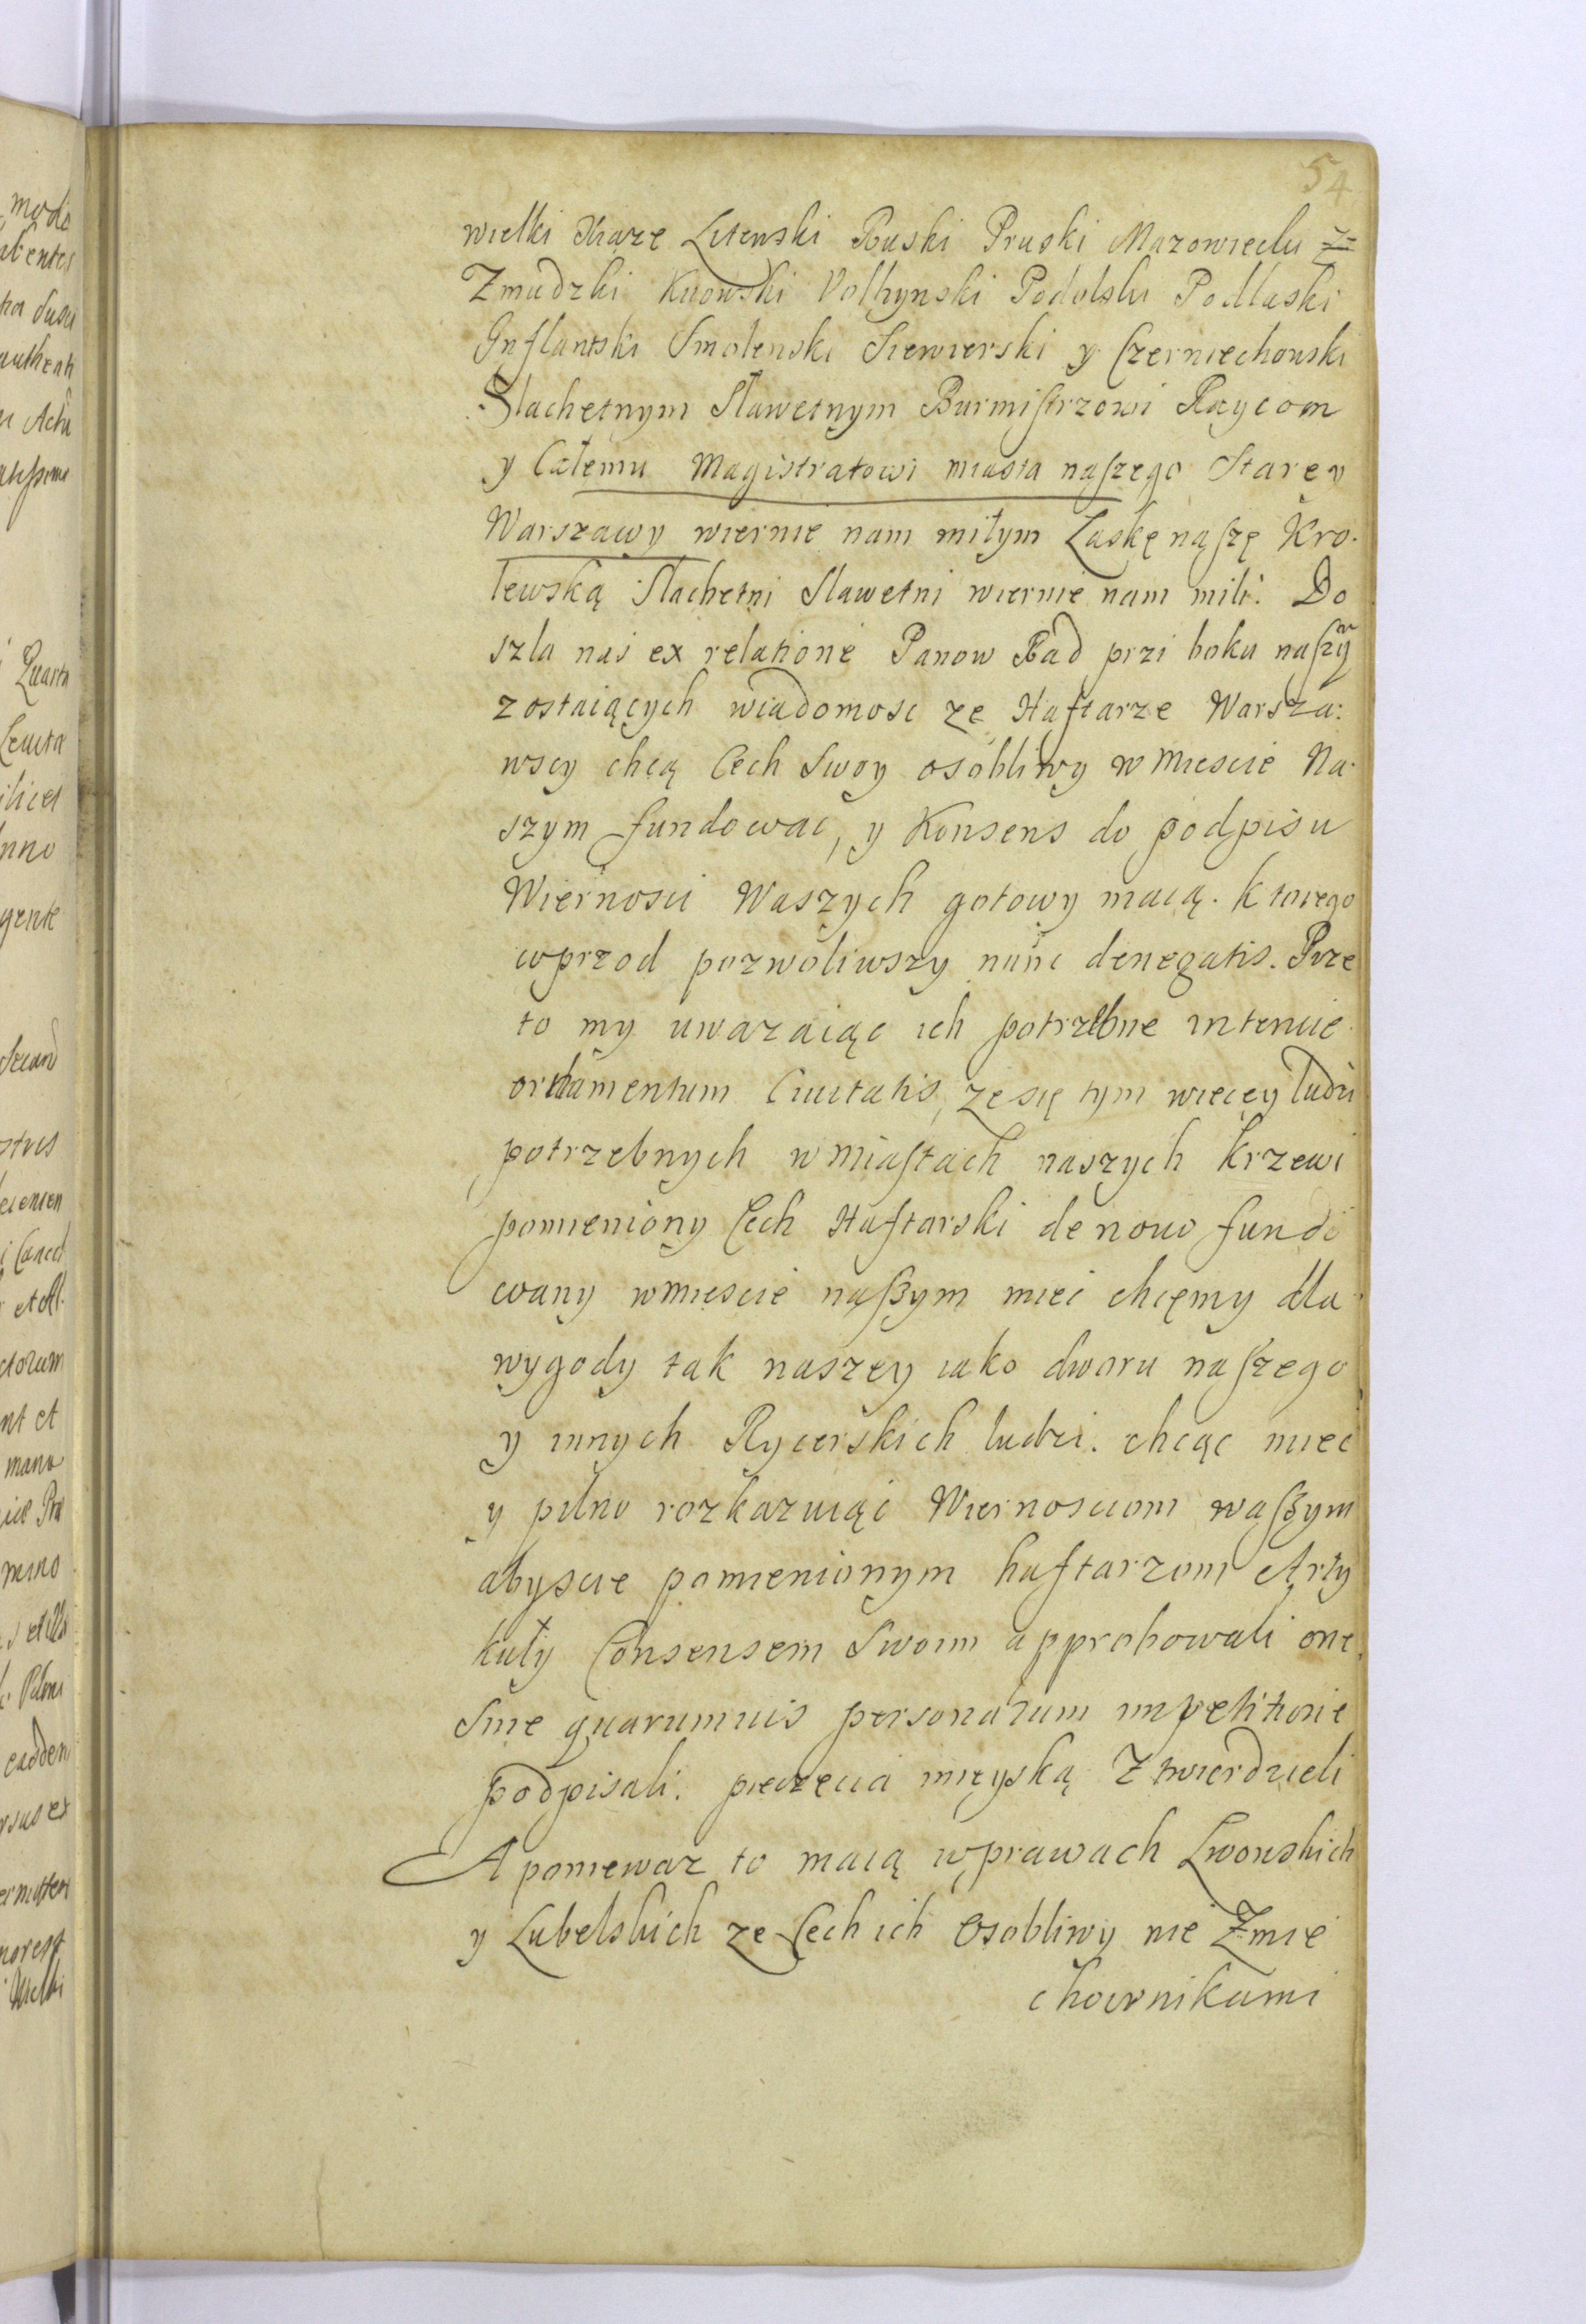 54
wielki Xiąze Litewski Ruski Pruski Mazowiecki
Zmudzki Kiiowski Volhynski Podolski Podlaski
Inflantski Smolenski Siewierski y Czerniechowski
Slachetnym Sławetnym Burmistrzowi Raycom
y Całemu Magistratowi miasta naszego Starey
Warszawy wiernie nam miłym Łaskę naszę Kro.
lewską Slachetni Sławetni wiernie nam mili. Do
szla nas ex relatione Panow Rad przi boku naszy
zostaiących wiadomosc ze Haftarze Warsza:
wscy chcą Cech Swoy osobliwy w miescie Na
szym fundowac, y Konsens do podpisu
Wiernosci Waszych gotowy maią. Ktorego
wprzod pozwoliwszy nunc denegatis. Prze
to my uwazaiąc ich potrzebne intencie
ornamentum Ciuitatis, ze się tym wiecey ludzi
potrzebnych w miastach naszych krzewi
pomieniony Cech Haftarski de nouo fundo
wany w miescie naszym miec chcemy dla
wygody tak naszey iako dworu naszego
y innych Rycerskich ludzi. chcąc miec
y pilno rozkazuiąc Wiernosciom waszym
abyscie pomienionym haftarzom Arty
kuły Consensem Swoim approbowali one
Sine quarumuis personarum impetitione
podpisali. pieczęcia mieyską Ztwierdzieli
A poniewaz to maią w prawach Lwowskich
y Lubelskich ze Cech ich Osobliwy nie Zmie
chownikami